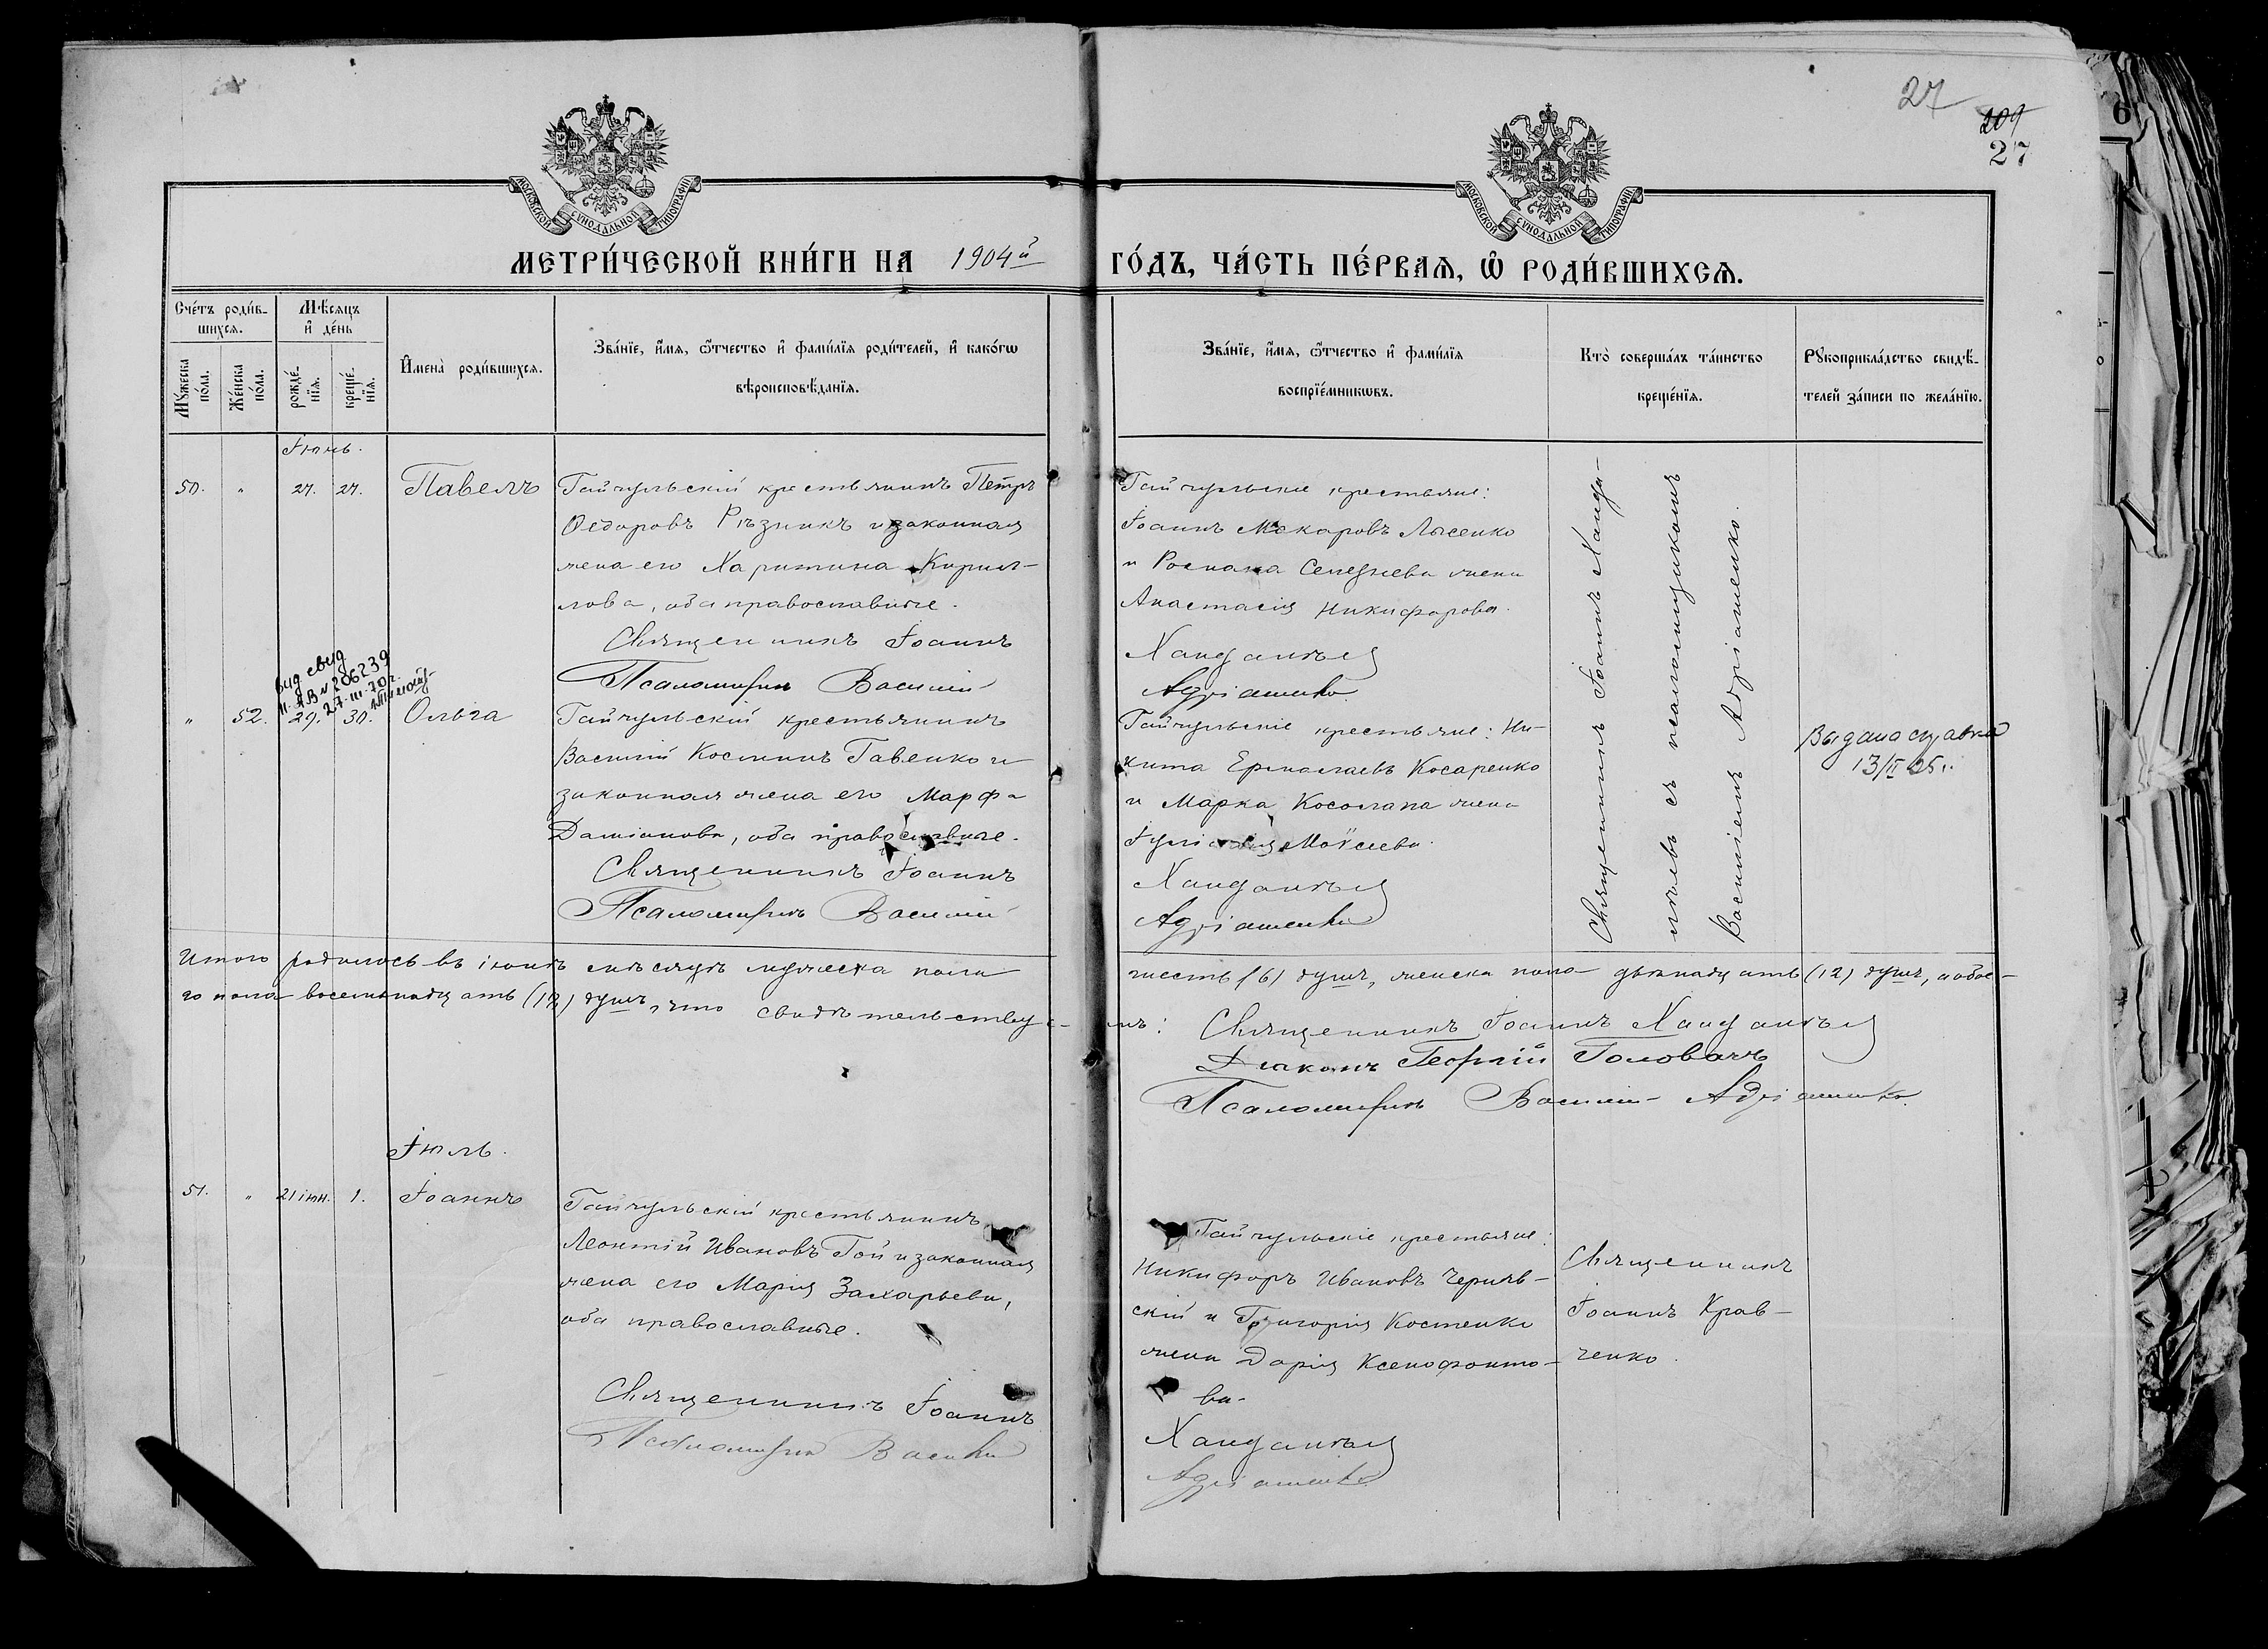 27
209
27
МОСКОВСКОЙ СѴНОДАЛЬНОЙ ТИПОГРАФІИ
МОСКОВСКОЙ СѴНОДАЛЬНОЙ ТИПОГРАФІИ
МЕТРИ́ЧЕСКОЙ КНИ́ГИ НА 1904й ГО́ДЪ, ЧА́СТЬ ПЕ́РВАѦ, Ѡ҆ РОДИ́ВШИХСѦ.
Сче́тъ роди́в-
шихсѧ.
Мꙋ́жеска по́ла.
Же́нска по́ла.
Мѣ́сѧцъ
и҆ де́нь
рожде́-
нїѧ.
креще́-
нїѧ.
И҆мена̀ роди́вшихсѧ.
Зва́нїе, и҆́мѧ, ѻ҆́тчество и҆ фами́лїѧ роди́телей, и҆ како́гѡ
вѣроисповѣ́данїѧ.
Зва́нїе, и҆́мѧ, ѻ҆́тчество и҆ фами́лїѧ
воспрїе́мникѡвъ.
Кто̀ соверша́лъ та́инство
креще́нїѧ.
Рꙋкоприкла́дство свидѣ́-
телей за́писи по жела́нїю.
Іюнь.
50. " 27. 27. Павелъ
Гайчульскій крестьянинъ Петръ
Ѳедоровъ Рѣзникъ и законная
жена его Харитина Кирил-
лова, оба православные.
Священникъ Іоаннъ
Псаломщикъ Василій
Гайчульскіе крестьяне:
Іоаннъ Макаровъ Лысенко
и Романа Селезнева жена
Анастасія Никифорова.
Хандалѣя
Адріашенко.
Священникъ Іоаннъ Ханда-
лѣевъ съ псаломщикомъ
Василіемъ Адріашенко.
выд свид
II-ЯВ № 206239
27.III.70г.
" 52. 29. 30. Ольга
Гайчульскій крестьянинъ
Василій Косминъ Гавенко и
законная жена его Марфа
Даміанова, оба православные.
Священникъ Іоаннъ
Псаломщикъ Василій
Гайчульскіе крестьяне: Ни-
кита Ермолаевъ Косаренко
и Марка Косолапа жена
Моѵсеева.
Хандалѣя
Адріашенко
Выдана справка
13/II 25г.
Итого родилось въ іюнѣ мѣсяцѣ мужеска пола шесть (6) душъ, женска пола двѣнадцать (12) душъ, а обое-
го пола восемнадцать (18) душъ, что свидѣтельствуемъ: Священникъ Іоаннъ Хандалѣя
Діаконъ Георгій Головачъ
Псаломщикъ Василій Адріашенко.
Іюль.
51. " 21 іюн. 1. Іоаннъ
Гайчульскій крестьянинъ
Леонтій Ивановъ Гой и законная
жена его Марія Захарьева,
оба православные.
Священникъ Іоаннъ
Псаломщикъ Василій
Гайчульскіе крестьяне:
Никифоръ Ивановъ Черняв-
скій и Григорія Костенко
жена Дарія Ксенофонто-
ва.
Хандалѣя
Адріашенко
Священникъ
Іоаннъ Крав-
ченко.